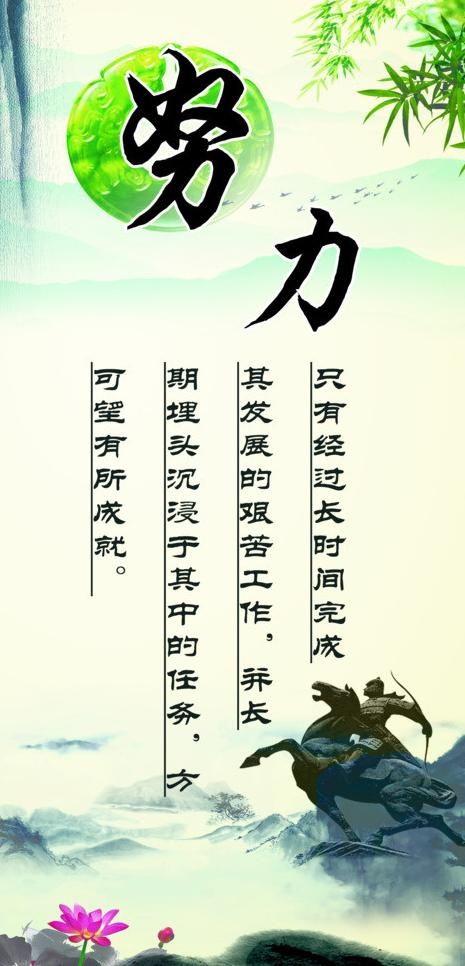 努力
只有经过长时间完成
其发展的艰苦工作，并长
期埋头沉浸于其中的任务，方
可望有所成就。